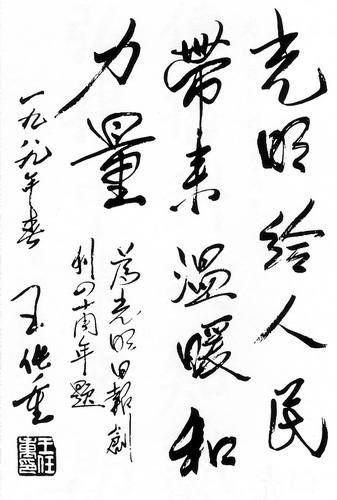 光明给人民
帶来温暖和
力量
為光明日報創
刊四十周年題
一九八九年春
王任重
王任重印